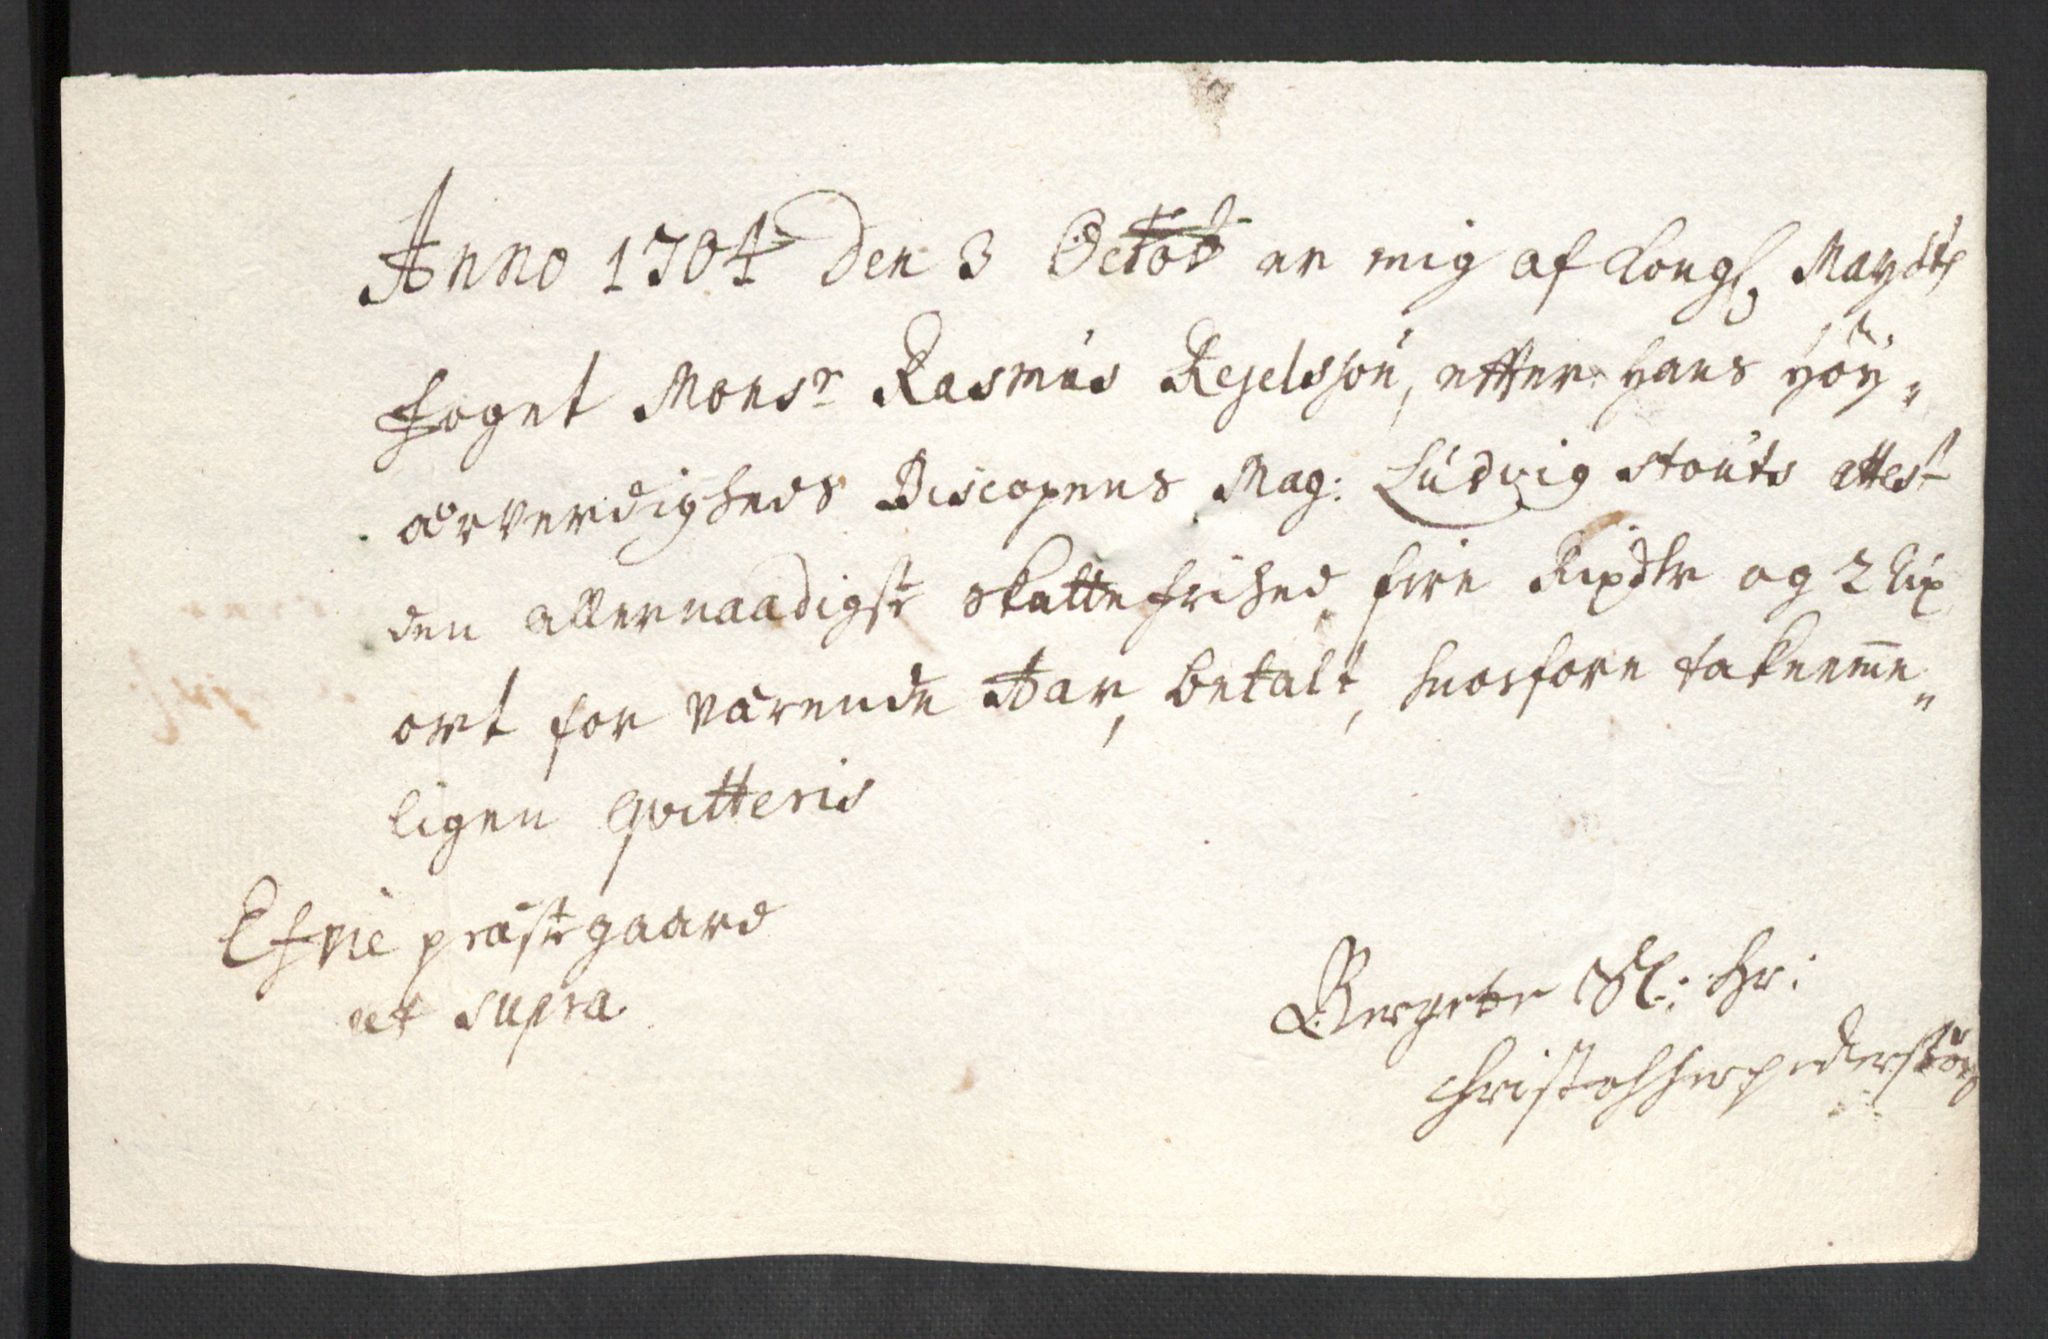 Anno 1704 den 3 Octob er mig af Kongl. Mayds
foget Monsr Rasmus Kejelsson, effter hans höy„
ærverdigheds Biscopens Mag: Ludvig Stouts attest
den allernaadigste Skattefrihed fire Rixdlr og 2 Rix
ort for værende Aar, betalt, huorfore takneme„
ligen qvitteris
Efvie præstegaard
ut supra
Bergete Sl: Hr:
Christopher Peders